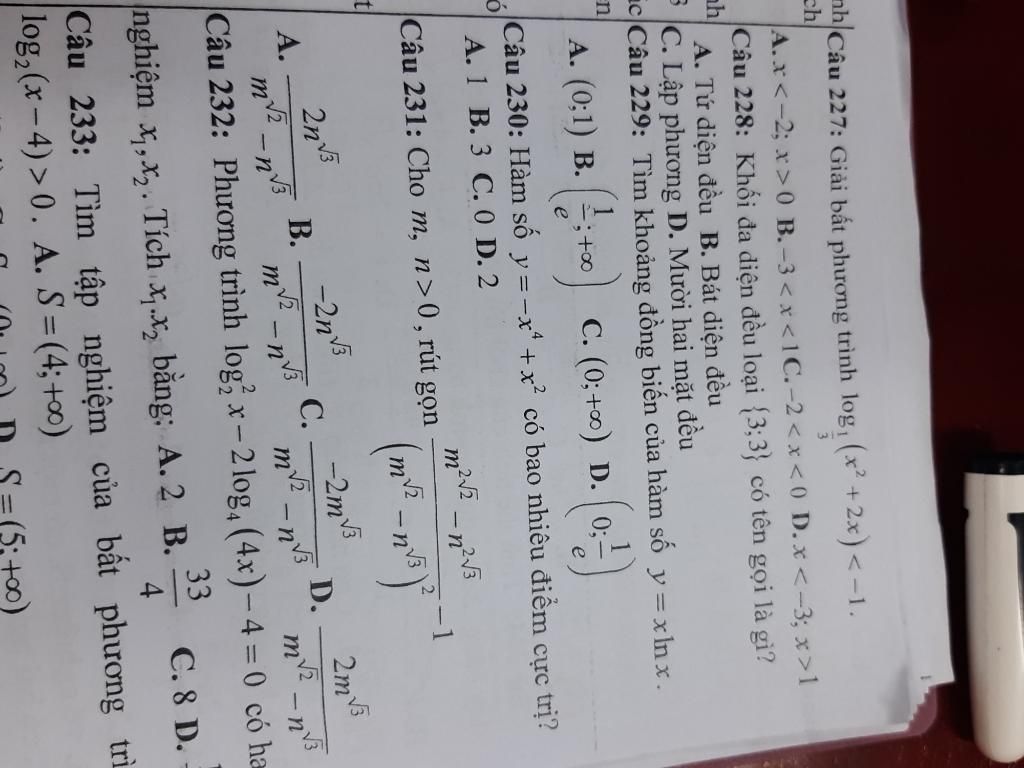 nh
ch
nh
3
ác
n
ó
t
Câu 227: Giải bất phương trình log_{1/3}(x² + 2x) < −1.
A. x < −2; x > 0 B. −3 < x < 1 C. −2 < x < 0 D. x < −3; x > 1
Câu 228: Khối đa diện đều loại {3;3} có tên gọi là gì?
A. Tứ diện đều B. Bát diện đều
C. Lập phương D. Mười hai mặt đều
Câu 229: Tìm khoảng đồng biến của hàm số y = x ln x.
A. (0;1) B. (1/e; +∞) C. (0; +∞) D. (0; 1/e)
Câu 230: Hàm số y = −x⁴ + x² có bao nhiêu điểm cực trị?
A. 1 B. 3 C. 0 D. 2
Câu 231: Cho m, n > 0, rút gọn (m^{2√2} − n^{2√3})/(m^{√2} − n^{√3})² − 1
A. 2n^{√3}/(m^{√2} − n^{√3}) B. −2n^{√3}/(m^{√2} − n^{√3}) C. −2m^{√3}/(m^{√2} − n^{√3}) D. 2m^{√3}/(m^{√2} − n^{√3})
Câu 232: Phương trình log₂² x − 2 log₄(4x) − 4 = 0 có ha
nghiệm x₁, x₂. Tích x₁.x₂ bằng: A. 2 B. 33/4 C. 8 D.
Câu 233: Tìm tập nghiệm của bất phương trì
log₂(x − 4) > 0. A. S = (4; +∞)
D. S = (5; +∞)